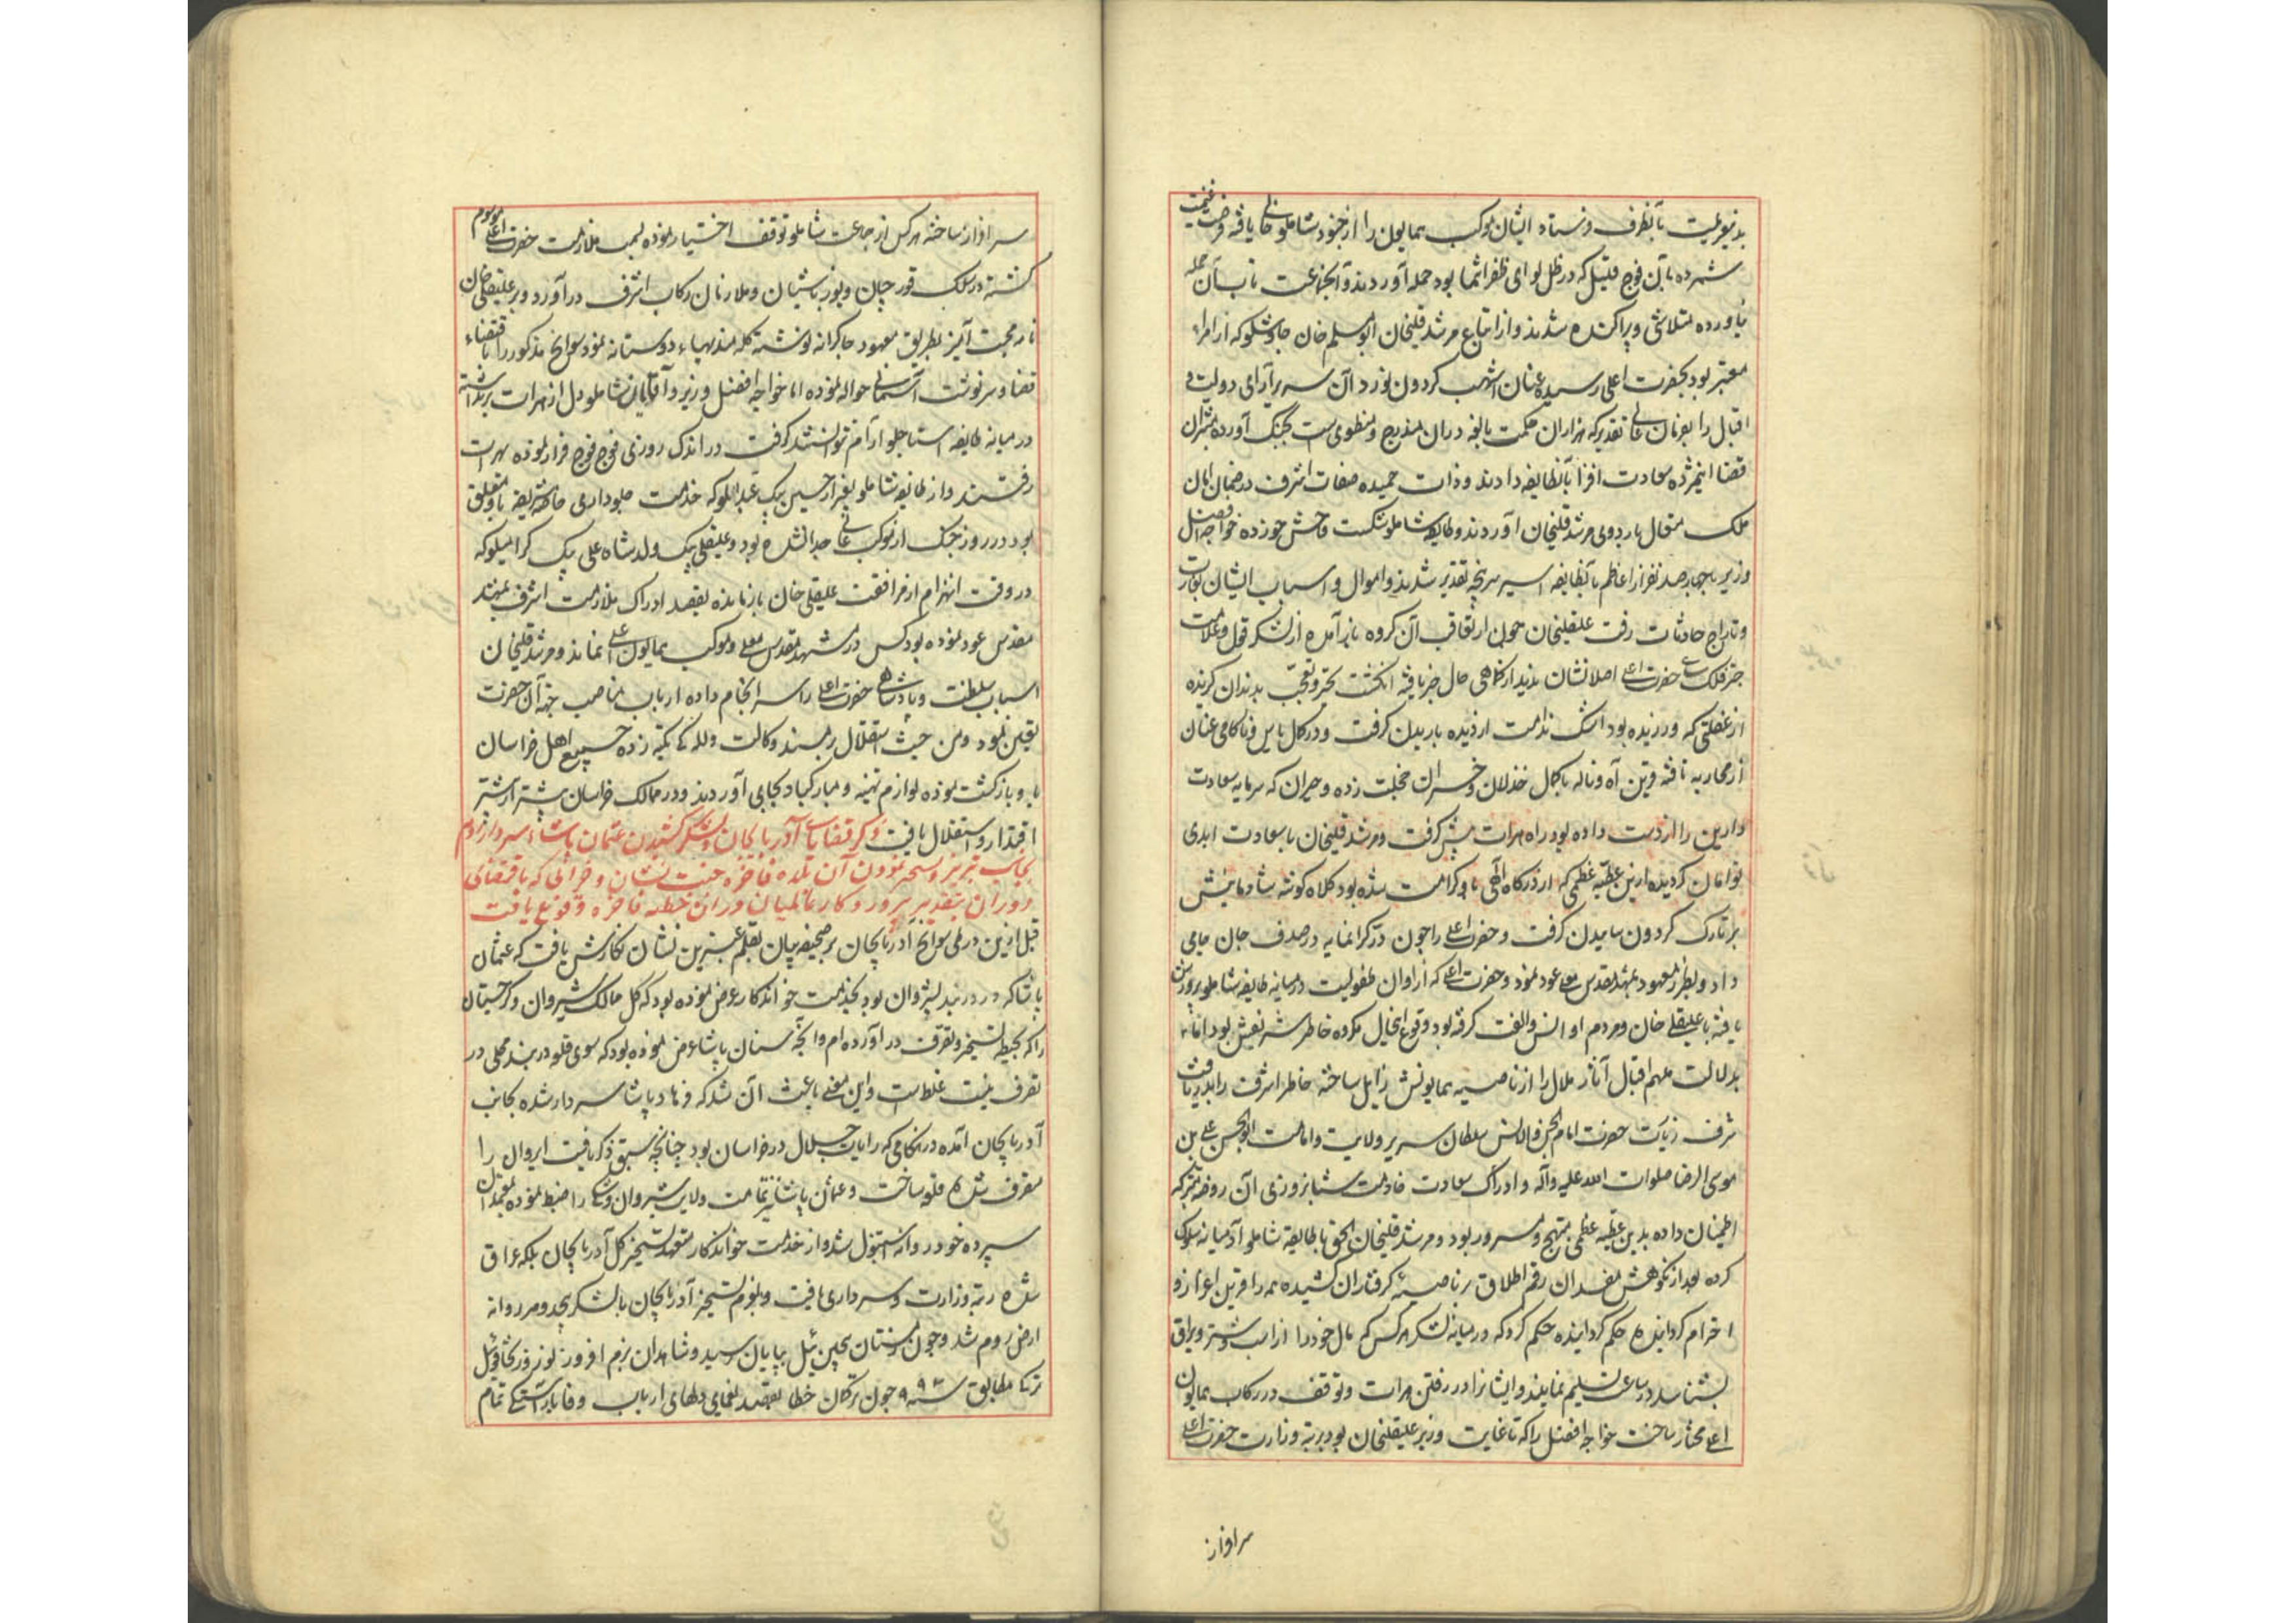 بدینعزیمت بآنطرف فرستاده ایشان موکب همایون را از جنود شاملو خالی یافته فرصت غنیمت
شمرده بآن فوج قلیل که در ظل لوای ظفر انتما بود حمله آوردند و آنجماعت تاب آن حمله
نیاورده متلاشی و پراکنده شدند و از اتباع مرشدقلیخان ابومسلم خان چاوشلو که از امراء
معتبر بود بحضرت اعلی رسیده عنان اشهب گردون نورد آن سریرآرای دولت و
اقبال را بفرمان تقدیر که هزاران حکمت بالغه در آن مندرج و منطوی است بچنگ آورده مبشران
قضا اینمژده سعادت افزا بآنطایفه دادند و ذات حمیده صفات اشرف در ضمان امان
ملک متعال باردوی مرشدقلیخان آوردند و طایفه شاملو شکست فاحش خورده خواجه افضل
وزیر با چهارصد نفر از اعاظم آنطایفه اسیر سرپنجه تقدیر شدند و اموال و اسباب ایشان بغارت
و تاراج حادثات رفت علیقلیخان چون از تعاقب آن گروه باز آمده از لشکر قول و علامت
چتر فلک سای حضرت اعلی اصلا نشان ندید از کماهی حال خبر یافته انگشت تحیر و تعجب بدندان گزیده
از غفلتی که ورزیده بود اشک ندامت از دیده باریدن گرفت و در کمال یاس و ناکامی عنان
از محاربه تافته قرین آه و ناله با کمال خذلان و خسران خجلت زده و حیران که سرمایه سعادت
دارین را از دست داده بود راه هرات پیش گرفت و مرشدقلیخان با سعادت ابدی
توامان گردیده ازین عطیه عظمی که از درگاه الهی باو کرامت شده بود کلاه گوشه شادمانیش
بر تارک گردون ساییدن گرفت و حضرت اعلی را چون در گرانمایه در صدف جان جای
داد و بطرز معهود بمشهد مقدس معلی عود نمود و حضرت اعلی که از اوان طفولیت در میانه طایفه شاملو پرورش
یافته با علیقلی خان و مردم او انس و الفت گرفته بود وقوع اینحال مکروه خاطر شریفش بود اما
بدلالت ملهم اقبال آثار ملال را از ناصیه همایونش زایل ساخته خاطر اشرف را بدریافت
شرف زیارت حضرت امام الجن والانس سلطان سریر ولایت و امامت ابوالحسن علی بن
موسی الرضا صلوات الله علیه وآله و ادراک سعادت خادمت شبانروزی آن روضه متبرکه
اطمینان داده بدین عطیه عظمی مبتهج و مسرور بود و مرشدقلیخان الحق با طایفه شاملو آدمیانه سلوک
کرده بعد از نکوهش مفسدان رقم اطلاق بر ناصیه گرفتاران کشیده همه را قرین اعزاز و
احترام گردانیده حکم کرد که در میانه لشکر هر کس که مال خود را از اسب و شتر و یراق
بشناسد در ساعت تسلیم نمایند و ایشانرا در رفتن هرات و توقف در رکاب همایون
اعلی مختار ساخت خواجه افضل را که تا غایت وزیر علیقلیخان بود برتبه وزارت حضرت اعلی
سرافراز
سرافراز ساخته هر کس از جماعت شاملو توقف اختیار نموده بمنصب ملازمت حضرت اعلی موسوم
گشته در سلک قورچیان و یوزباشیان و ملازمان رکاب اشرف درآورد و بعلیقلی خان
نامه محبت آمیز بطریق معهود چاکرانه نوشته گله مندیهاء دوستانه نمود سوانح مذکور را باقتضاء
قضا و سرنوشت آسمانی حواله نموده اما خواجه افضل وزیر و آقایان شاملو دل از هرات برنداشته
در میانه طایفه استاجلو آرام نتوانستند گرفت در اندک روزی فوج فوج فرار نموده بهرات
رفتند و از طایفه شاملو بغیر از حسین بیک عبداللو که خدمت جلوداری خاصه شریفه باو متعلق
بود در روز جنک از موکب عالی جدا نشده بود و علیقلی بیک ولد شاه علی بیک گرامیلو که
در وقت انهزام از مرافقت علیقلی خان بازمانده بقصد ادراک ملازمت اشرف بمشهد
مقدس عود نموده بود کس در مشهد مقدس معلی و موکب همایون اعلی نماند و مرشدقلیخان
اسباب سلطنت و پادشاهی حضرت اعلی را سرانجام داده ارباب مناصب جهة آن حضرت
تعیین نمود و من حیث استقلال بر مسند وکالت و للگی تکیه زده جمیع اهل خراسان
باو بازگشت نموده لوازم تهنیه و مبارکباد بجای آوردند و در ممالک خراسان بیشتر از پیشتر
اقتدار و استقلال یافت ذکر قضایای آذربایجان و لشکر کشیدن عثمان پاشاء سردار روم
بجانب تبریز و مسخر نمودن آن بلده فاخره جنت نشان و خرابی که باقتضای
دوران بتقدیر پرور دکار عالمیان در آن خطه فاخره وقوع یافت
قبل ازین در طی سوانح آذربایجان بر صحیفه بیان بقلم عنبرین نشان نگارش یافت که عثمان
پاشا که در دربند شیروان بود بخدمت خواندگار عرض نموده بود که کل ممالک شیروان و گرجستان
را که بحیطه تسخیر و تصرف درآورده ام و آنچه سنان پاشا عرض نموده بود که سوی قلعه دربند محلی در
تصرف نیست غلط است و این معنی باعث آن شد که فرهاد پاشا سردار شده بجانب
آذربایجان آمده در هنگامی که رایات جلال در خراسان بود چنانچه سبق ذکر یافت ایروان را
متصرف شده قلعه ساخت و عثمان پاشا نیز تمامت ولایت شیروان و شکی را ضبط نموده بمعتمدان
سپرده خود روانه استنبول شد و از خدمت خواندگار متعهد تسخیر کل آذربایجان بلکه عراق
شده رتبه وزارت و سرداری یافت و بعزم تسخیر آذربایجان با لشکر بیحد و مر روانه
ارض روم شد و چون زمستان پیچین ئیل بپایان رسید و شاهدان بزم افروز نوروز تخاقوی ئیل
ترکی مطابق سنه ۹۹۳ چون ترکان خطا بقصد یغمای دلهای ارباب وفا باراستگی تمام